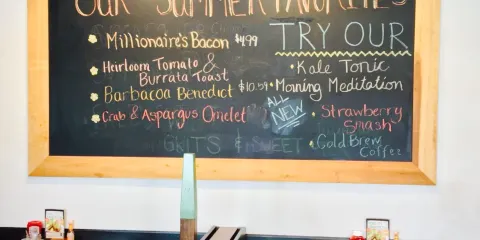 OUR SUMMER FAVORITES
Millionaire's Bacon $4.99
Heirloom Tomato &
Burrata Toast
Barbacoa Benedict $10.59
Crab & Asparagus Omelet
TRY OUR
• Kale Tonic
• Morning Meditation
ALL
NEW
• Strawberry
Smash
• Cold Brew
Coffee
GRITS & SWEET